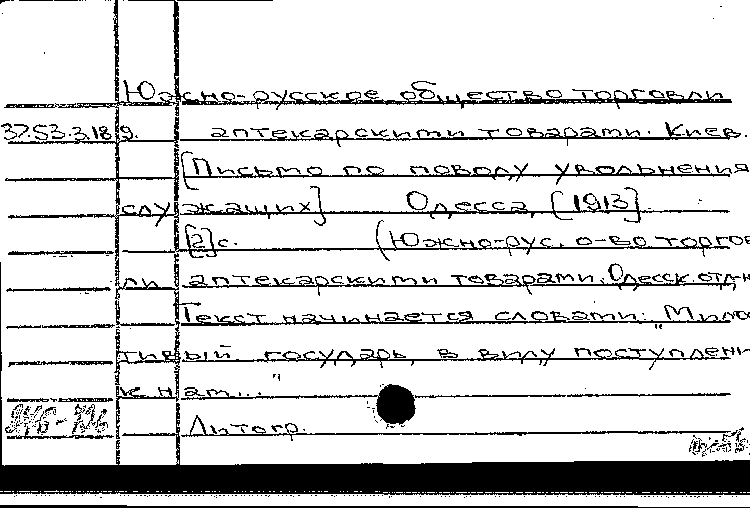 Южно-русское общество торговли
37.53.3.189. аптекарскими товарами. Киев.
[Письмо по поводу увольнения
служащих] Одесса, [1913].
[2]с. (Южно-рус. о-во торгов
ли аптекарскими товарами. Одесск отд-н
Текст начинается словами: „Милос
тивый государь, в виду поступлени
к нам..."
Литогр.